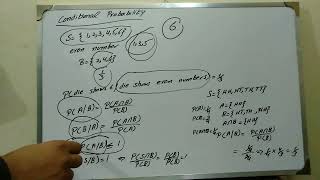 Conditional Probability
S={1,2,3,4,5,6}
6
even number
1,3,5
B={2,4,6}
1/3
P(die shows 6 | die shows even number) = 1/3
P(A|B) = P(A∩B)/P(B)
P(B|A) = P(A∩B)/P(A)
P(A|B) ≤ 1
P(S|B) = 1 ⇒ P(S∩B)/P(B) = P(B)/P(B) = 1
S={HH, HT, TH, TT}
A={HH}
A∩B={HH}
P(A|B) = P(A∩B)/P(B)